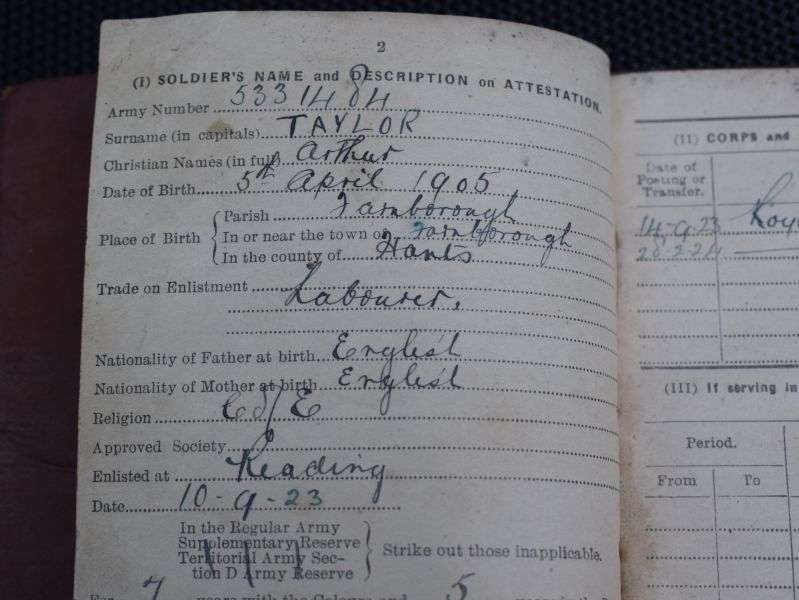 2
(I) SOLDIER'S NAME and DESCRIPTION on ATTESTATION.
Army Number 5331484
Surname (in capitals) TAYLOR
Christian Names (in full) Arthur
Date of Birth 5th April 1905
Place of Birth
Parish Farnborough
In or near the town of Farnborough
In the county of Hants
Trade on Enlistment Labourer,
Nationality of Father at birth English
Nationality of Mother at birth English
Religion C of E
Approved Society
Enlisted at Reading
Date 10-9-23
In the Regular Army
Supplementary Reserve
Territorial Army Sec-
tion D Army Reserve
Strike out those inapplicable.
For 7 years with the Colours and 5 years in the
(II) CORPS and
Date of
Posting or
Transfer.
14-9-23
(III) If serving in
Period.
From To